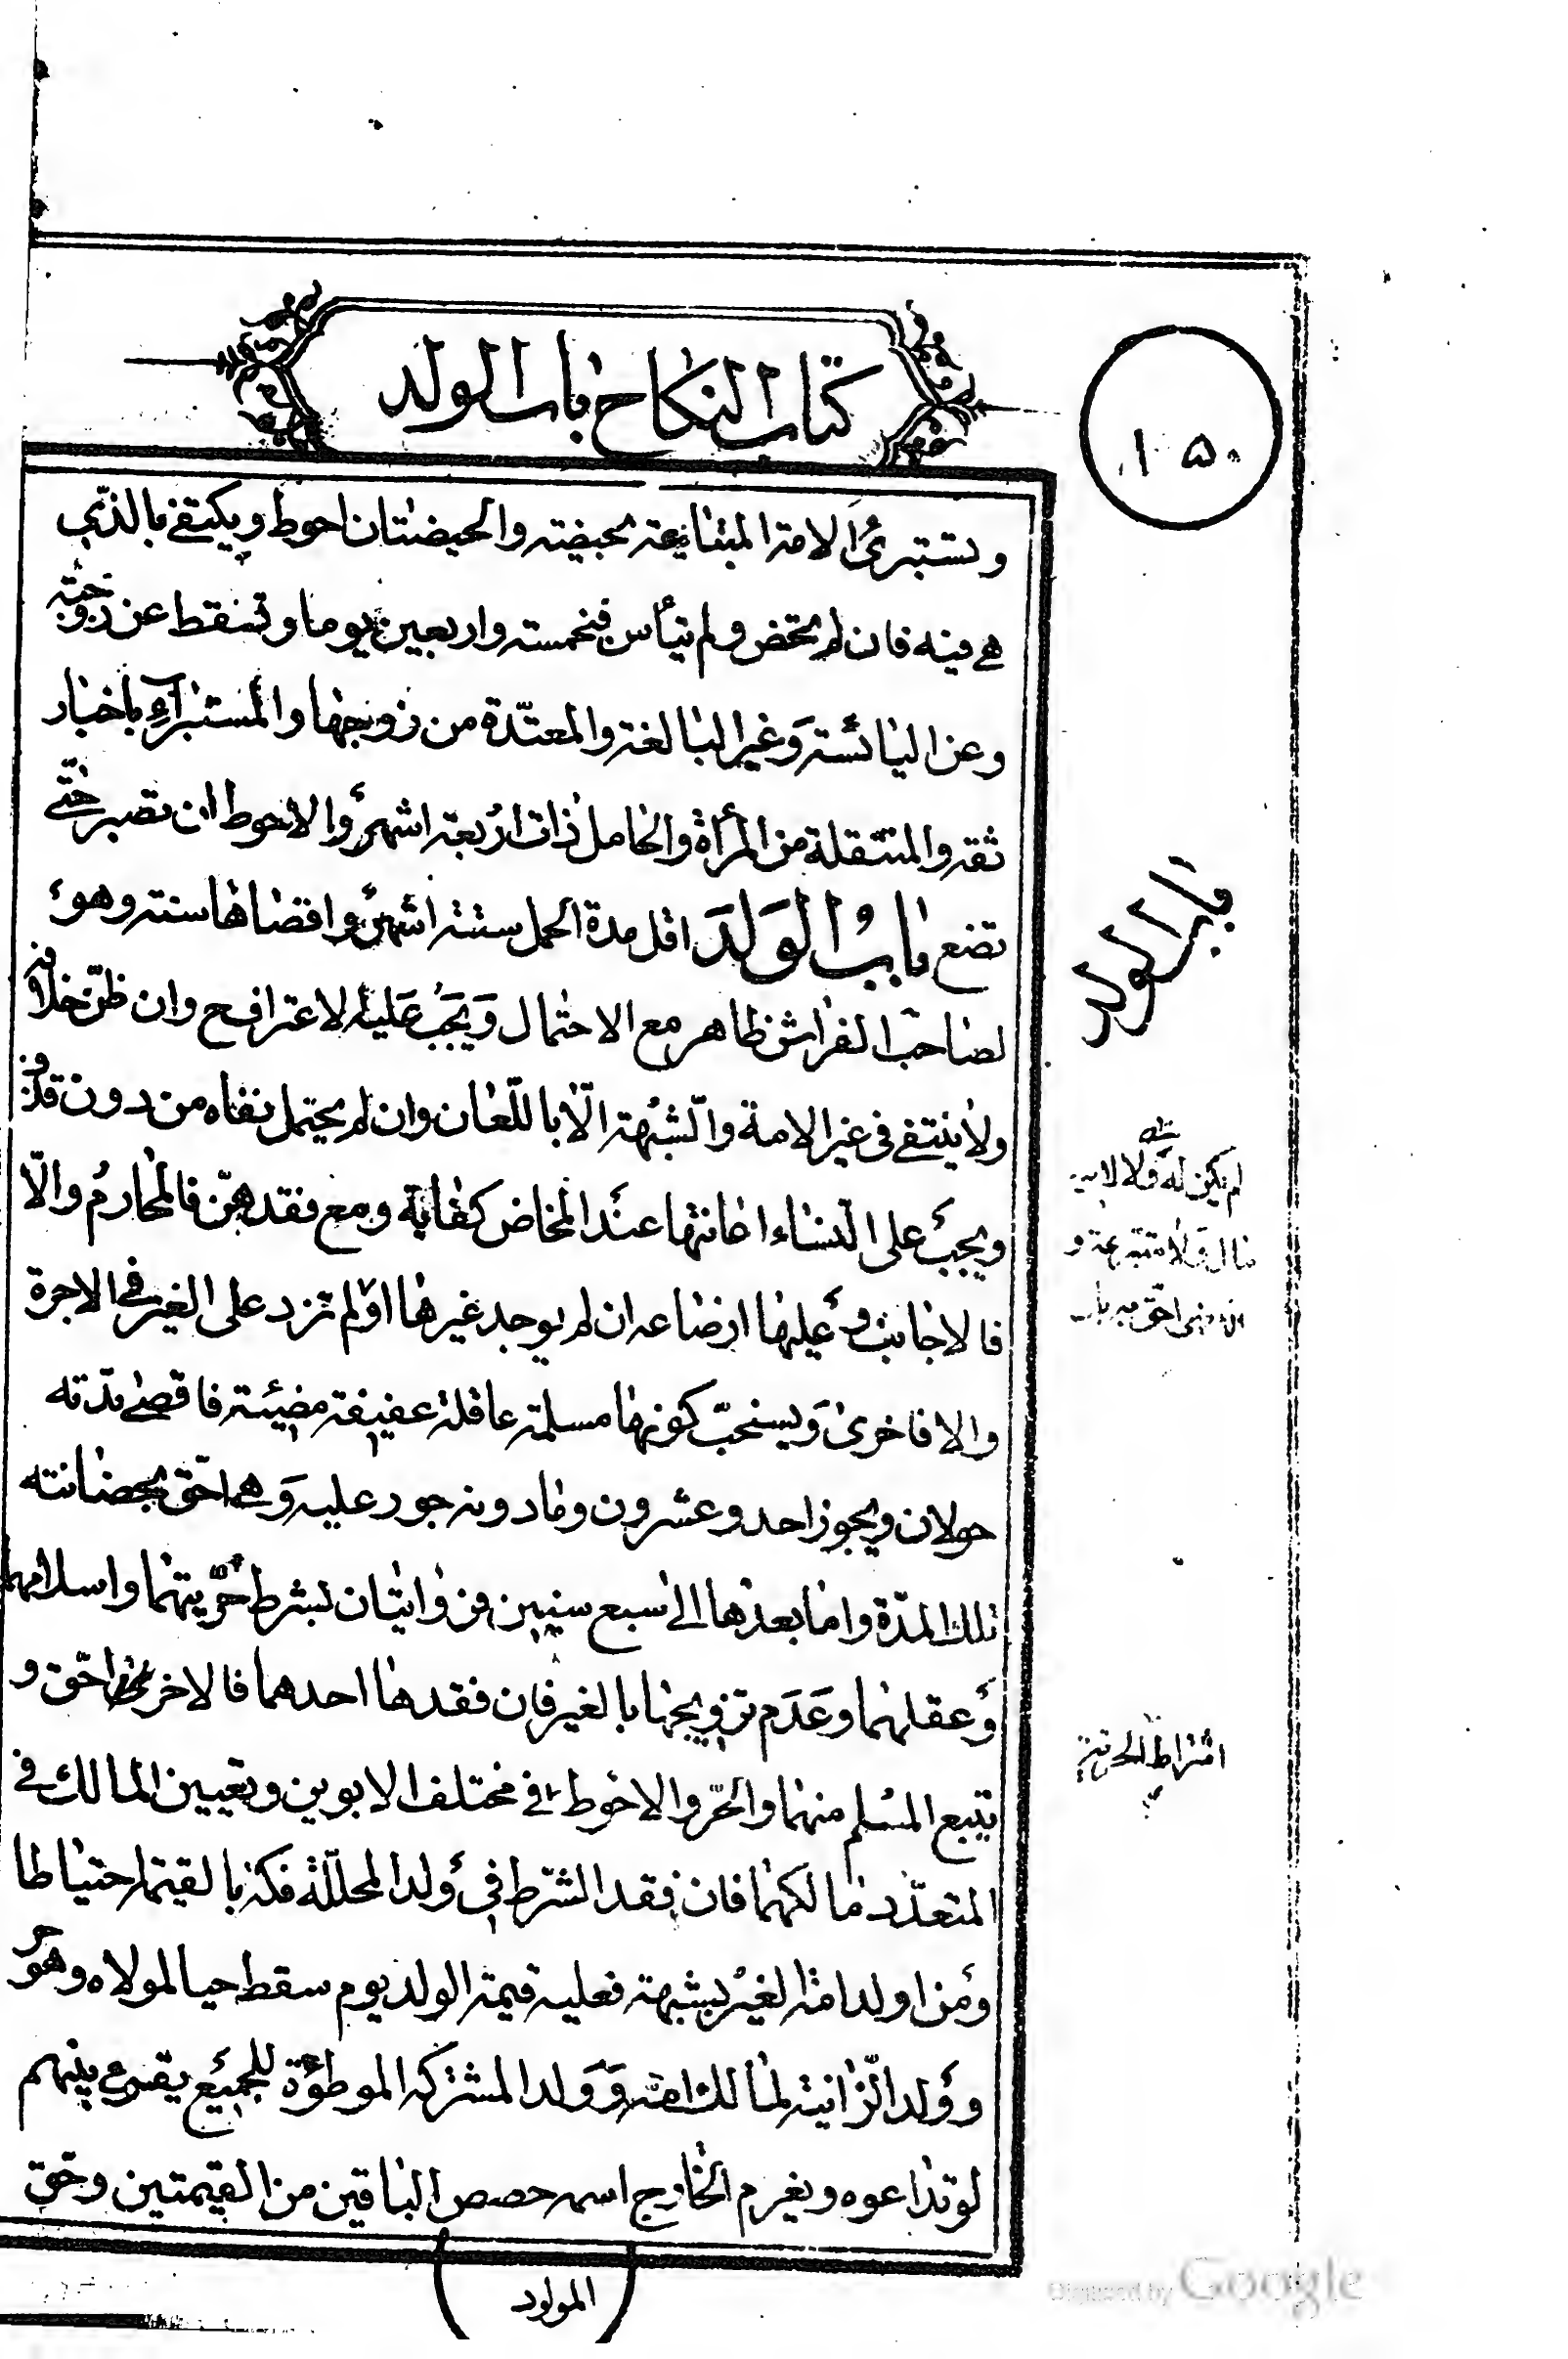 ۱۵۰
كتاب النكاح باب الولد
وتستبرئ الامة المبتاعة بحيضة والحيضتان احوط ويكتفى بالذي
هي فيه فان لم تحض ولم تيأس فبخمسة واربعين يوما وتسقط عن زوجته
وعن اليائسة وغير البالغة والمعتدّة من زوجها والمستبرأة باخبار
ثقة والمنتقلة من المرأة والحامل ذات اربعة اشهر والاحوط ان تصبر حتّى
تضع باب الولد اقل مدة الحمل ستة اشهر واقصاها سنة وهو
لصاحب الفراش ظاهر مع الاحتمال ويجب عليه الاعتراف ح وان ظنّ خلافه
ولا ينتفى في غير الامة والشبهة الّا باللّعان وان لم يحتمل نفاه من دون قذف
ويجب على النساء اعانتها عند المخاض كفاية ومع فقدهنّ فالمحارم والّا
فالاجانب وعليها ارضاعه ان لم يوجد غيرها او لم تزد على الغير في الاجرة
والا فاخرى ويستحبّ كونها مسلمة عاقلة عفيفة مضيئة فاقصى مدّته
حولان ويجوز احد وعشرون وما دونه جور عليه وهي احقّ بحضانته
تلك المدّة واما بعدها الى سبع سنين فروايتان بشرط حرّيتهما واسلامهما
وعقلهما وعدم تزويجها بالغير فان فقدها احدهما فالاخر احقّ و
يتبع المسلم منهما والحرّ والاحوط في مختلف الابوين وتعيين المالك في
المتعدّد مالكهما فان فقد الشرط في ولد المحلّلة فكّه بالقيمة احتياطا
ومن اولد امة الغير بشبهة فعليه قيمة الولد يوم سقط حيا لمولاه وهو حر
وولد الزانية لمالك امّه وولد المشتركة الموطوءة للجميع يقرع بينهم
لو تداعوه ويغرم الخارج اسمه حصص الباقين من القيمتين وحقّ
(المولود)
باب الولد
لم يكن له
احقّ به
اشتراط الحرية
Digitized by Google